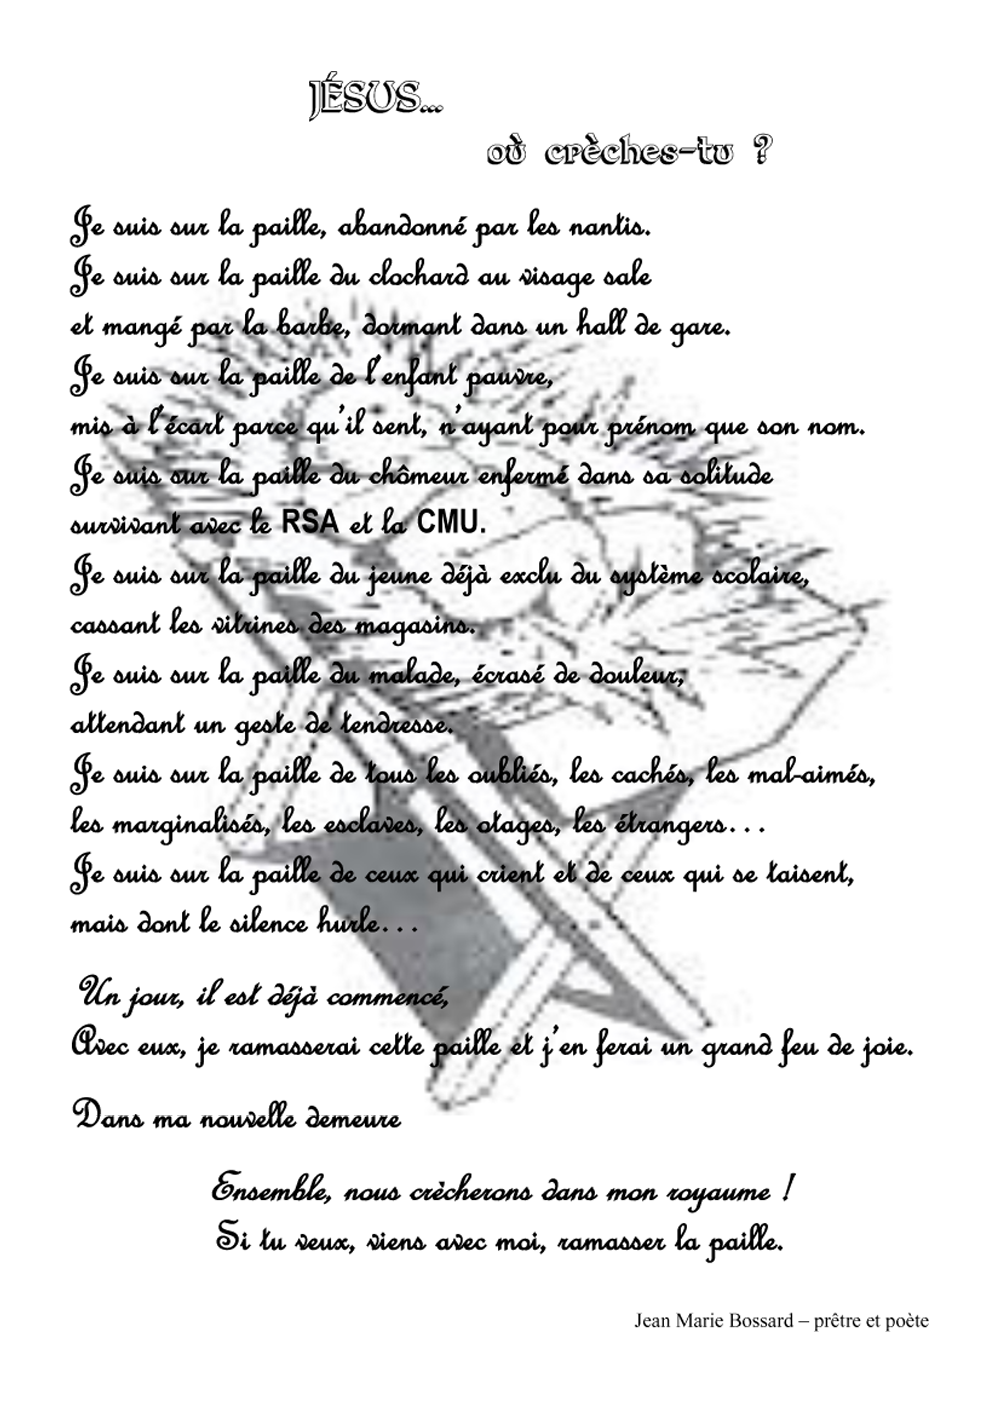 JÉSUS...
où crèches-tu ?
Je suis sur la paille, abandonné par les nantis.
Je suis sur la paille du clochard au visage sale
et mangé par la barbe, dormant dans un hall de gare.
Je suis sur la paille de l'enfant pauvre,
mis à l'écart parce qu'il sent, n'ayant pour prénom que son nom.
Je suis sur la paille du chômeur enfermé dans sa solitude
survivant avec le RSA et la CMU.
Je suis sur la paille du jeune déjà exclu du système scolaire,
cassant les vitrines des magasins.
Je suis sur la paille du malade, écrasé de douleur,
attendant un geste de tendresse.
Je suis sur la paille de tous les oubliés, les cachés, les mal-aimés,
les marginalisés, les esclaves, les otages, les étrangers…
Je suis sur la paille de ceux qui crient et de ceux qui se taisent,
mais dont le silence hurle…
Un jour, il est déjà commencé,
Avec eux, je ramasserai cette paille et j'en ferai un grand feu de joie.
Dans ma nouvelle demeure
Ensemble, nous crècherons dans mon royaume !
Si tu veux, viens avec moi, ramasser la paille.
Jean Marie Bossard – prêtre et poète